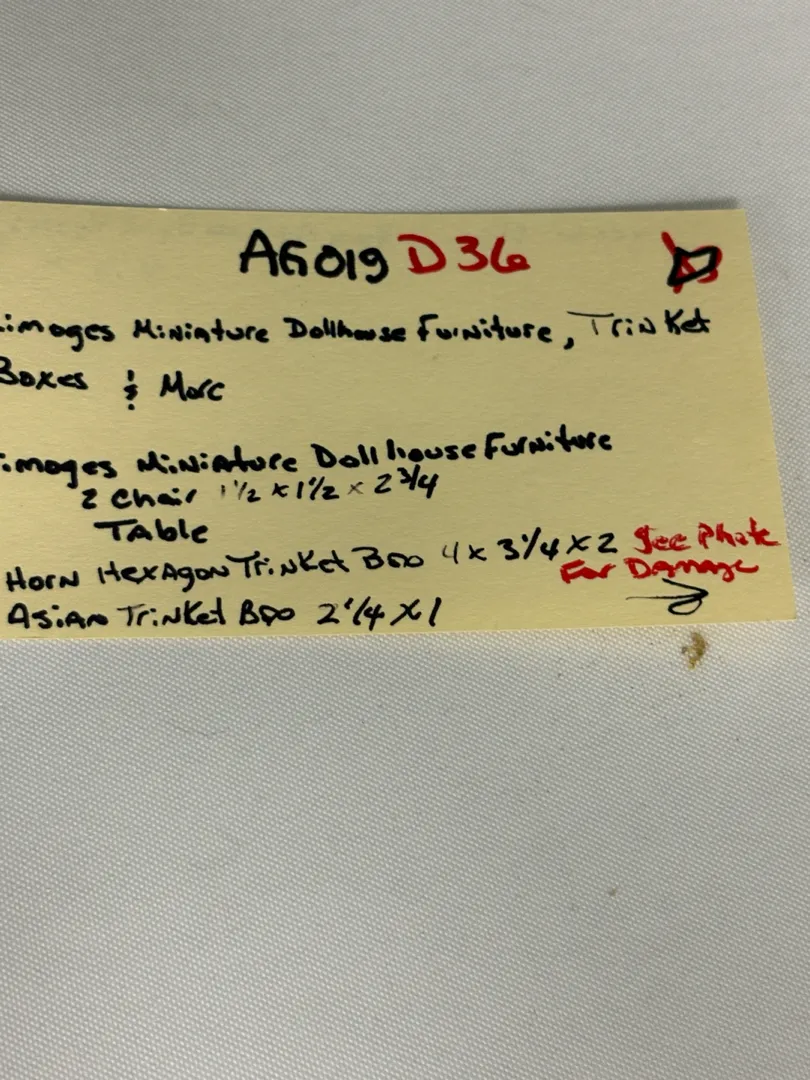 AG019 D36
imoges Miniature Dollhouse Furniture, Trinket
Boxes & More
imoges Miniature Dollhouse Furniture
2 Chair 1 1/2 x 1 1/2 x 2 3/4
Table
Horn Hexagon Trinket Box 4 x 3 1/4 x 2 See Photo
For Damage
Asian Trinket Box 2 1/4 x 1